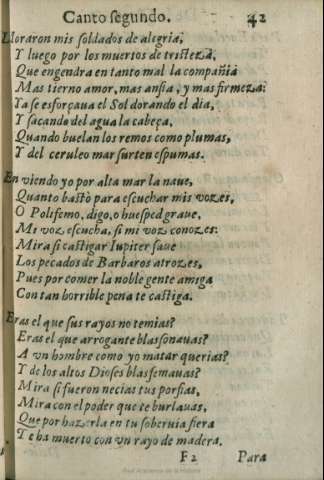 Canto segundo. 42
Lloraron mis soldados de alegria,
Y luego por los muertos de tristeza,
Que engendra en tanto mal la compañia
Mas tierno amor, mas ansia, y mas firmeza:
Ya se esforçaua el Sol dorando el dia,
Y sacando del agua la cabeça,
Quando buelan los remos como plumas,
Y del ceruleo mar surten espumas.
En viendo yo por alta mar la naue,
Quanto bastò para escuchar mis vozes,
O Polifemo, digo, o huesped graue,
Mi voz escucha, si mi voz conozes:
Mira si castigar Iupiter saue
Los pecados de Barbaros atrozes,
Pues por comer la noble gente amiga
Con tan horrible pena te castiga.
Eras el que sus rayos no temias?
Eras el que arrogante blasonauas?
A vn hombre como yo matar querias?
Y de los altos Dioses blasfemauas?
Mira si fueron necias tus porfias,
Mira con el poder que te burlauas,
Que por hazerla en tu soberuia fiera
Te ha muerto con vn rayo de madera.
F2 Para
Real Academia de la Historia